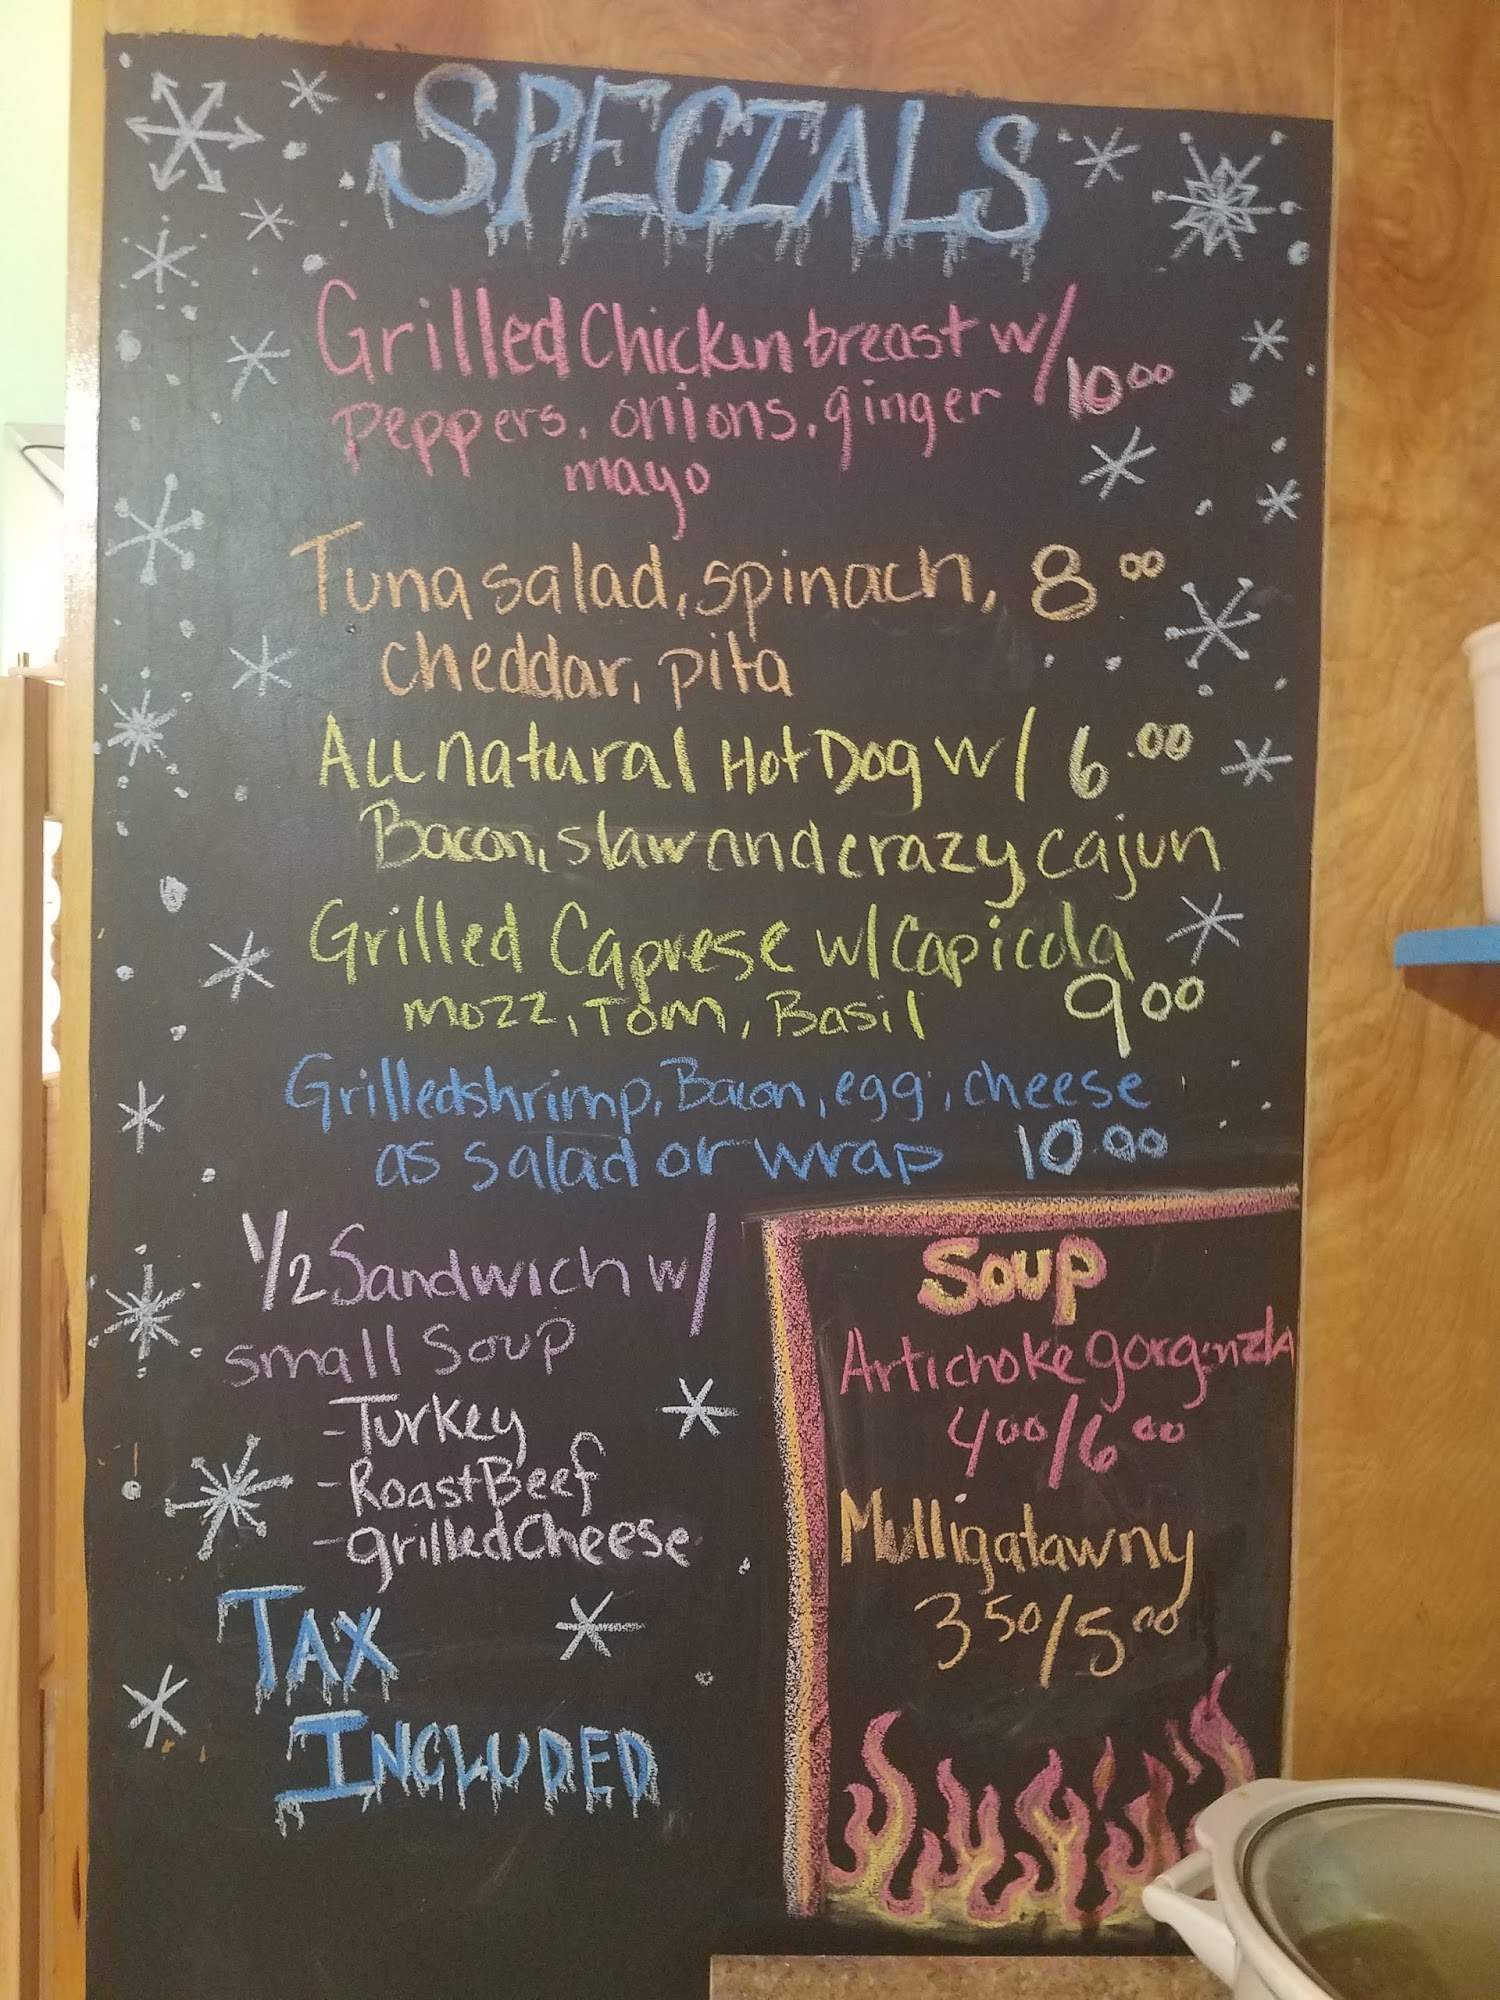 SPECIALS
Grilled Chicken breast w/
peppers, onions, ginger 10.00
mayo
Tuna salad, spinach, 8.00
cheddar, pita
All natural Hot Dog w/ 6.00
Bacon, slaw and crazy cajun
Grilled Caprese w/ Capicola
mozz, Tom, Basil 9.00
Grilled shrimp, Bacon, egg, cheese
as salad or wrap 10.00
1/2 Sandwich w/
small Soup
-Turkey
-Roast Beef
-grilled Cheese
TAX
INCLUDED
Soup
Artichoke gorgonzola
4.00/6.00
Mulligatawny
3.50/5.00